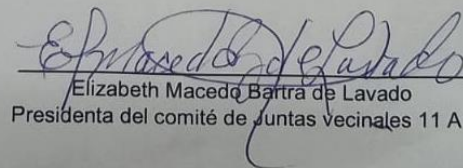 E. Macedo de Lavado
Elizabeth Macedo Bartra de Lavado
Presidenta del comité de Juntas vecinales 11 A